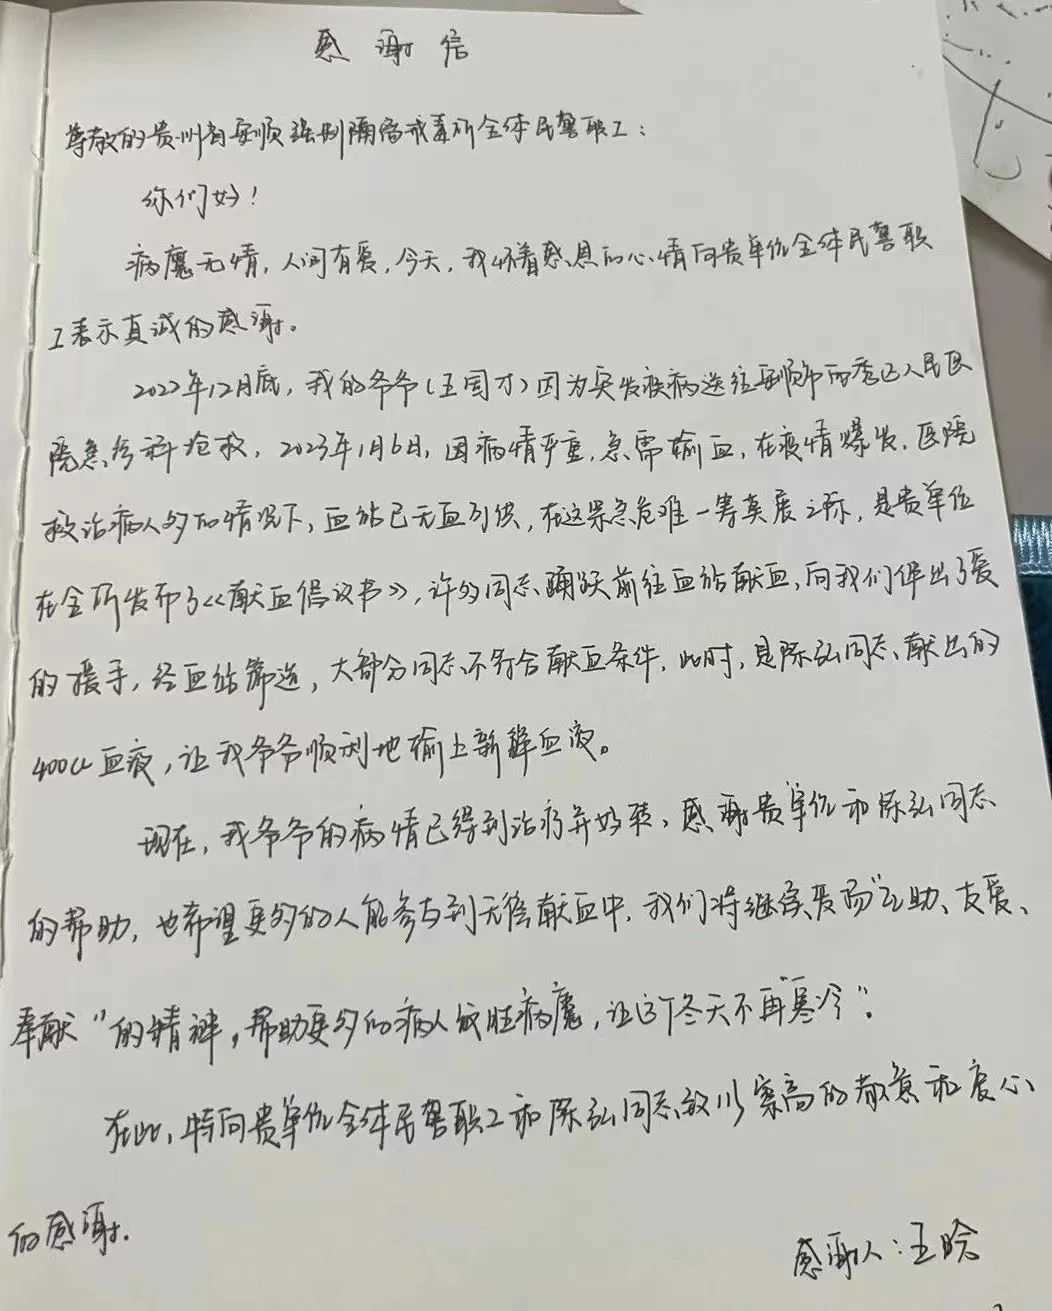 感谢信
尊敬的贵州省安顺强制隔离戒毒所全体民警职工：
你们好！
病魔无情，人间有爱，今天，我怀着感恩的心情向贵单位全体民警职
工表示真诚的感谢。
2022年12月底，我的爷爷（王国才）因为突发疾病送往安顺市西秀区人民医
院急诊科抢救，2023年1月6日，因病情严重，急需输血，在疫情爆发，医院
救治病人多的情况下，血站已无血可供，在这紧急危难一筹莫展之际，是贵单位
在全所发布了《献血倡议书》，许多同志踊跃前往血站献血，向我们伸出了爱
的援手，经血站筛选，大部分同志不符合献血条件，此时，是陈弘同志献出的
400cc血液，让我爷爷顺利地输上新鲜血液。
现在，我爷爷的病情已得到治疗并好转，感谢贵单位和陈弘同志
的帮助，也希望更多的人能参与到无偿献血中，我们将继续发扬“互助、友爱、
奉献”的精神，帮助更多的病人战胜病魔，让这个冬天不再“寒冷”。
在此，特向贵单位全体民警职工和陈弘同志致以崇高的敬意和衷心
的感谢.
感谢人：王晗